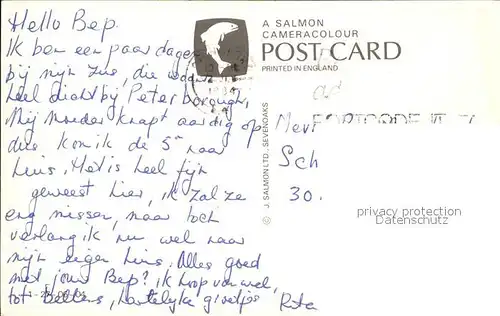 Hello Bep.
Ik ben een paar dagen
bij mijn zus, die woont
heel dicht bij Peterborough,
Mij Moeder knapt aardig op
dus kom ik de 5e naar
huis, Het is heel fijn
geweest hier, ik zal ze
erg missen, maar toch
verlang ik nu wel naar
mijn eigen huis, Alles goed
met jouw Bep? ik hoop van wel,
tot Bellens, hartelijke groetjes Rita
A SALMON
CAMERACOLOUR
POST CARD
PRINTED IN ENGLAND
© J. SALMON LTD., SEVENOAKS
POSTCODE IT
Mevr
Sch
30.
privacy protection
Datenschutz